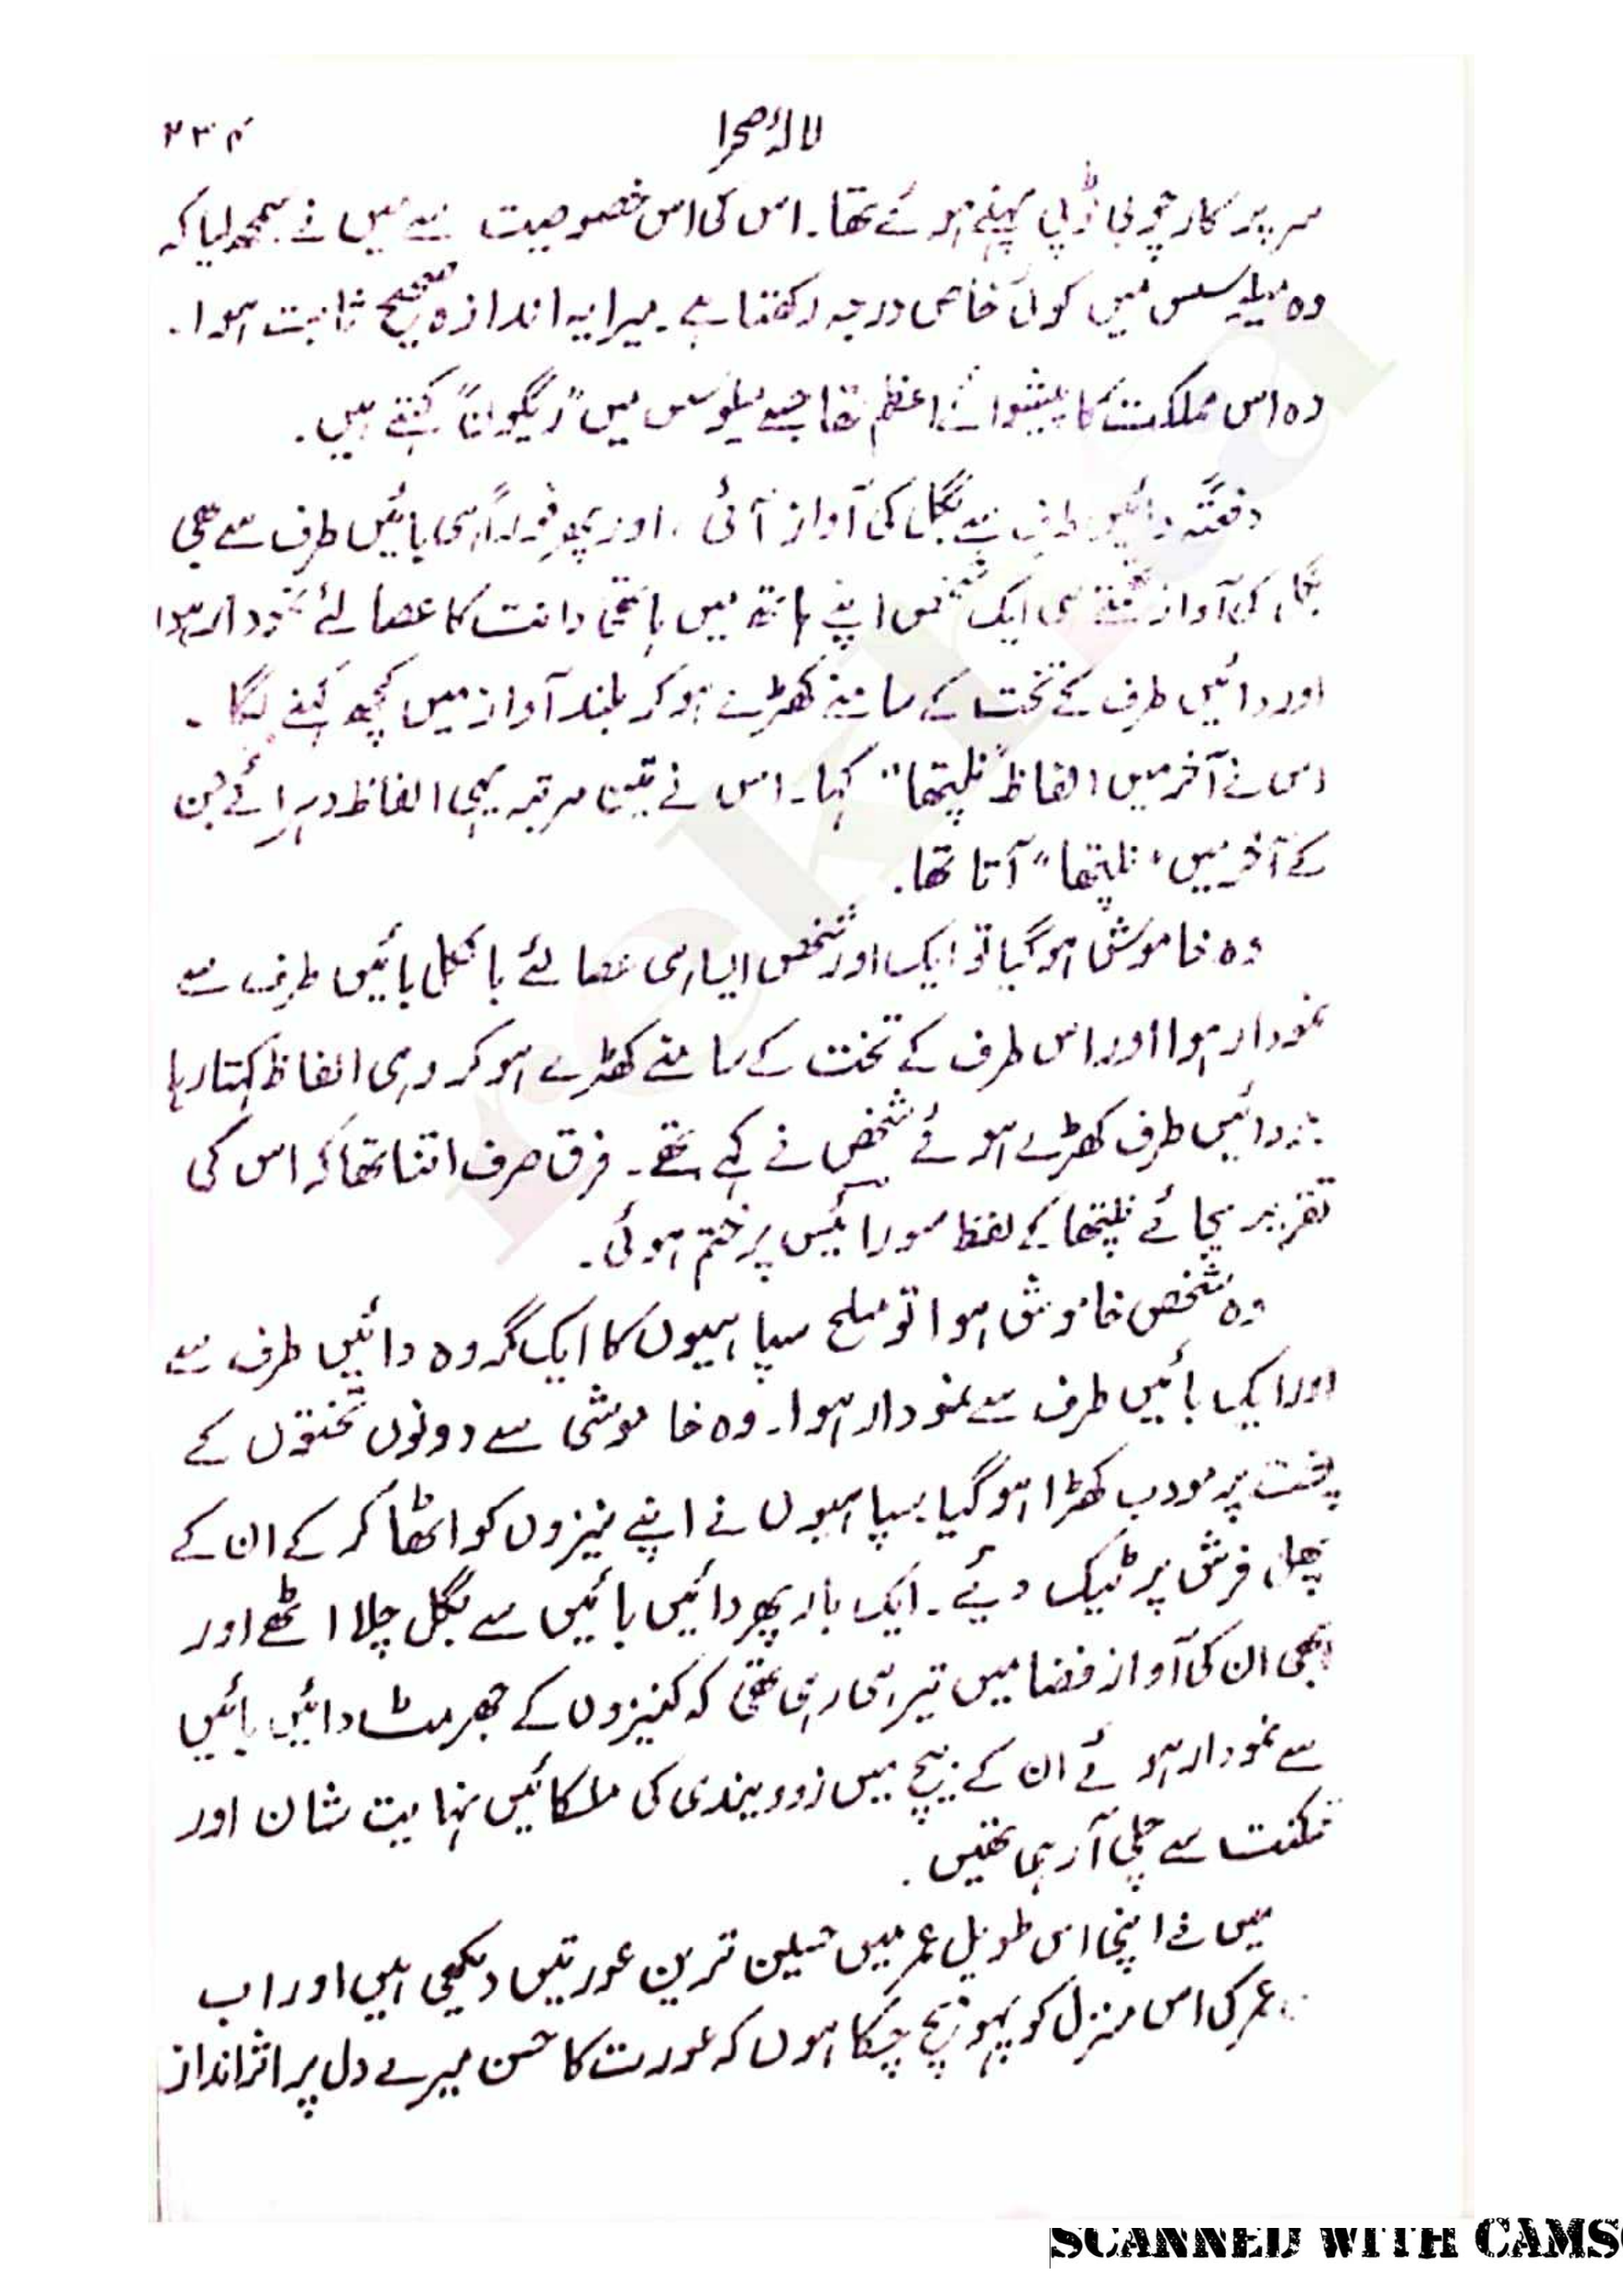 لالۂ صحرا ۲۳۴
سر پر کارچوبی ٹوپی پہنے ہوئے تھا۔ اس کی اس خصوصیت سے میں نے سمجھ لیا کہ
وہ میلوسس میں کوئی خاص درجہ رکھتا ہے۔ میرا یہ اندازہ صحیح ثابت ہوا۔
وہ اس مملکت کا پیشوائے اعظم تھا جسے میلوسس میں "ریگون" کہتے ہیں۔
دفعتہً دائیں طرف سے بگل کی آواز آئی، اور پھر فوراً ہی بائیں طرف سے بھی
بگل کی آواز سنتے ہی ایک شخص اپنے ہاتھ میں ہاتھی دانت کا عصا لئے نمودار ہوا
اور دائیں طرف کے تخت کے سامنے کھڑے ہو کر بلند آواز میں کچھ کہنے لگا۔
اس نے آخر میں الفاظ "نلپتھا" کہا۔ اس نے تین مرتبہ یہی الفاظ دہرائے جن
کے آخر میں "نلپتھا" آتا تھا۔
وہ خاموش ہو گیا تو ایک اور شخص ایسا ہی عصا لئے بالکل بائیں طرف سے
نمودار ہوا اور اس طرف کے تخت کے سامنے کھڑے ہو کر وہی الفاظ کہتا رہا
جو دائیں طرف کھڑے ہوئے شخص نے کہے تھے۔ فرق صرف اتنا تھا کہ اس کی
تقریر بجائے نلپتھا کے لفظ سورائیس پر ختم ہوئی۔
وہ شخص خاموش ہوا تو مسلح سپاہیوں کا ایک گروہ دائیں طرف سے
اور ایک بائیں طرف سے نمودار ہوا۔ وہ خاموشی سے دونوں تختوں کے
پشت پر مودب کھڑا ہو گیا سپاہیوں نے اپنے نیزوں کو اٹھا کر کے ان کے
پھل فرش پر ٹیک دیئے۔ ایک بار پھر دائیں بائیں سے بگل چلا اٹھے اور
ابھی ان کی آواز فضا میں تیر ہی رہی تھی کہ کنیزوں کے جھرمٹ دائیں بائیں
سے نمودار ہوئے ان کے بیچ میں زوویندی کی ملکائیں نہایت شان اور
تمکنت سے چلی آ رہی تھیں۔
میں نے اپنی اس طویل عمر میں حسین ترین عورتیں دیکھی ہیں اور اب
عمر کی اس منزل کو پہونچ چکا ہوں کہ عورت کا حسن میرے دل پر اثر انداز
SCANNED WITH CAMS